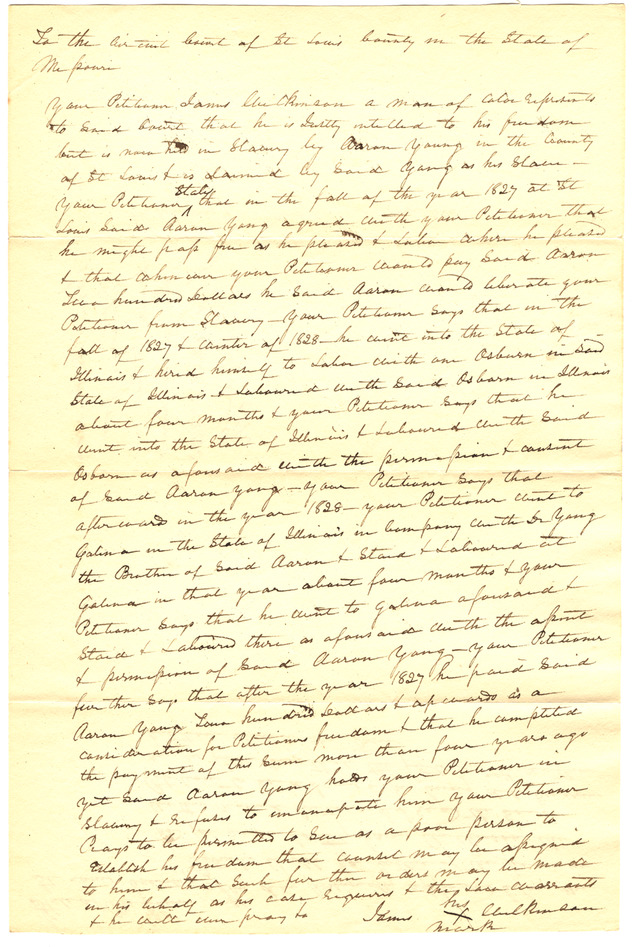 To the Circuit Court of St Louis County in the State of
Missouri
Your Petitioner James Wilkinson a man of color represents
to Said Court that he is Justly intitled to his freedom
but is now held in Slavery by Aaron Young in the County
of St Louis & is Claimed by Said Young as his Slave -
Your Petitioner States that in the fall of the year 1827 at St
Louis Said Aaron Yong agreed with your Petitioner that
he might pass free as he pleased & Labor where he pleased
& that whenever your Petitioner would pay Said Aaron
Two hundred Dollars he Said Aaron would liberate your
Petitioner from Slavery - Your Petitioner Says that in the
fall of 1827 & winter of 1828 - he went into the State of
Illinois & hired himself to Labor with one Osburn in Said
State of Illinois & Laboured with Said Osborn in Illinois
about four months & your Petitioner Says that he
went into the State of Illinois & Laboured with Said
Osborn as afousaid with the permission & consent
of Said Aaron Yong - Your Petitioner Says that
afterwards in the year 1828 - your Petitioner went to
Galena in the State of Illinois in Company with Dr Yong
the Brother of Said Aaron & Staid & Laboured at
Galena in that year about four months & your
Petitioner Says that he went to Galena afousaid &
Staid & Laboured there as afousaid with the assent
& permission of Said Aaron Yong - your Petitioner
further Says that after the year 1827 he paid Said
Aaron Yong Two hundred Dollars & upwards as a
consideration for Petitioners freedom & that he completed
the payment of this Sum more than four years ago
yet Said Aaron Yong holds your Petitioner in
Slavery & refuses to emancipate him your Petitioner
Prays to be permitted to Sue as a poor person to
Establish his freedom that counsel may be assigned
to him & that Such further orders may be made
in his behalf as his case requires & the Law warrants
& he will ever pray &c
James his X mark Wilkinson